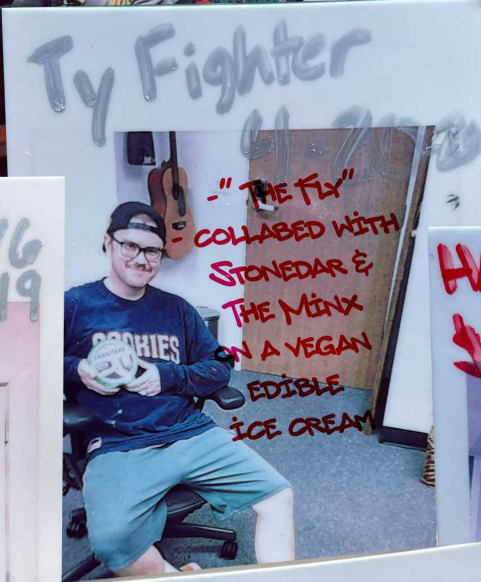 Ty Fighter
-" The Fly"
- collabed with
Stonedar &
The Minx
on a vegan
edible
ice cream
COOKIES